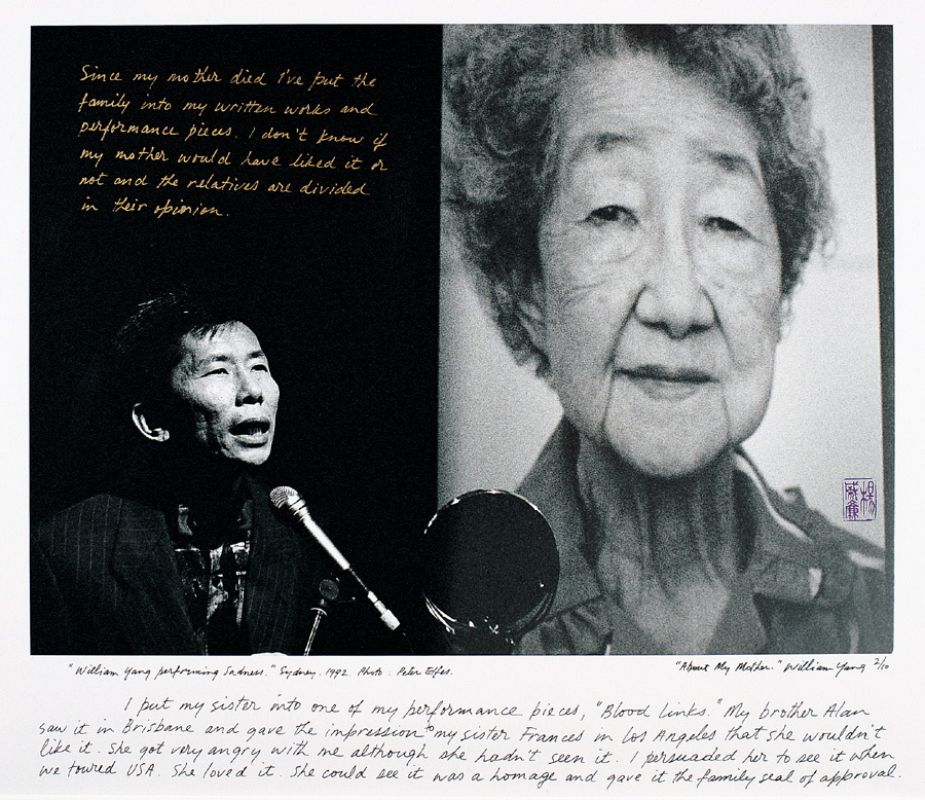 Since my mother died I've put the
family into my written works and
performance pieces. I don't know if
my mother would have liked it or
not and the relatives are divided
in their opinion.
"William Yang performing Sadness." Sydney. 1992. Photo: Peter Elfes.
"About My Mother." William Yang 2/10
I put my sister into one of my performance pieces, "Blood Links." My brother Alan
saw it in Brisbane and gave the impression to my sister Frances in Los Angeles that she wouldn't
like it. She got very angry with me although she hadn't seen it. I persuaded her to see it when
we toured USA. She loved it. She could see it was a homage and gave it the family seal of approval.